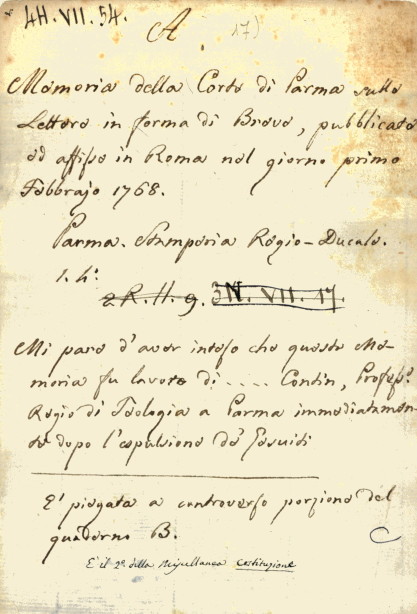 4H. VII. 54.
A
17)
Memoria della Corte di Parma sulle
Lettere in forma di Breve, pubblicate
ed affisse in Roma nel giorno primo
Febbrajo 1768.
Parma. Stamperia Regio-Ducale.
1. 4º.
2. R. H. 9. 3N. VII. 17.
Mi pare d'aver inteso che questa Me-
moria fu lavoro di .... Contin, Profess.
Regio di Teologia a Parma immediatamen-
te dopo l'espulsione de' Gesuiti
E' piegata a controverso porzione del
quaderno B.
C
E il 2º della Miscellanea